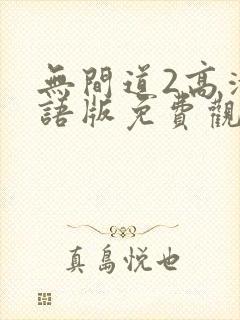 無間道2高清
語版免費觀
真島悦也